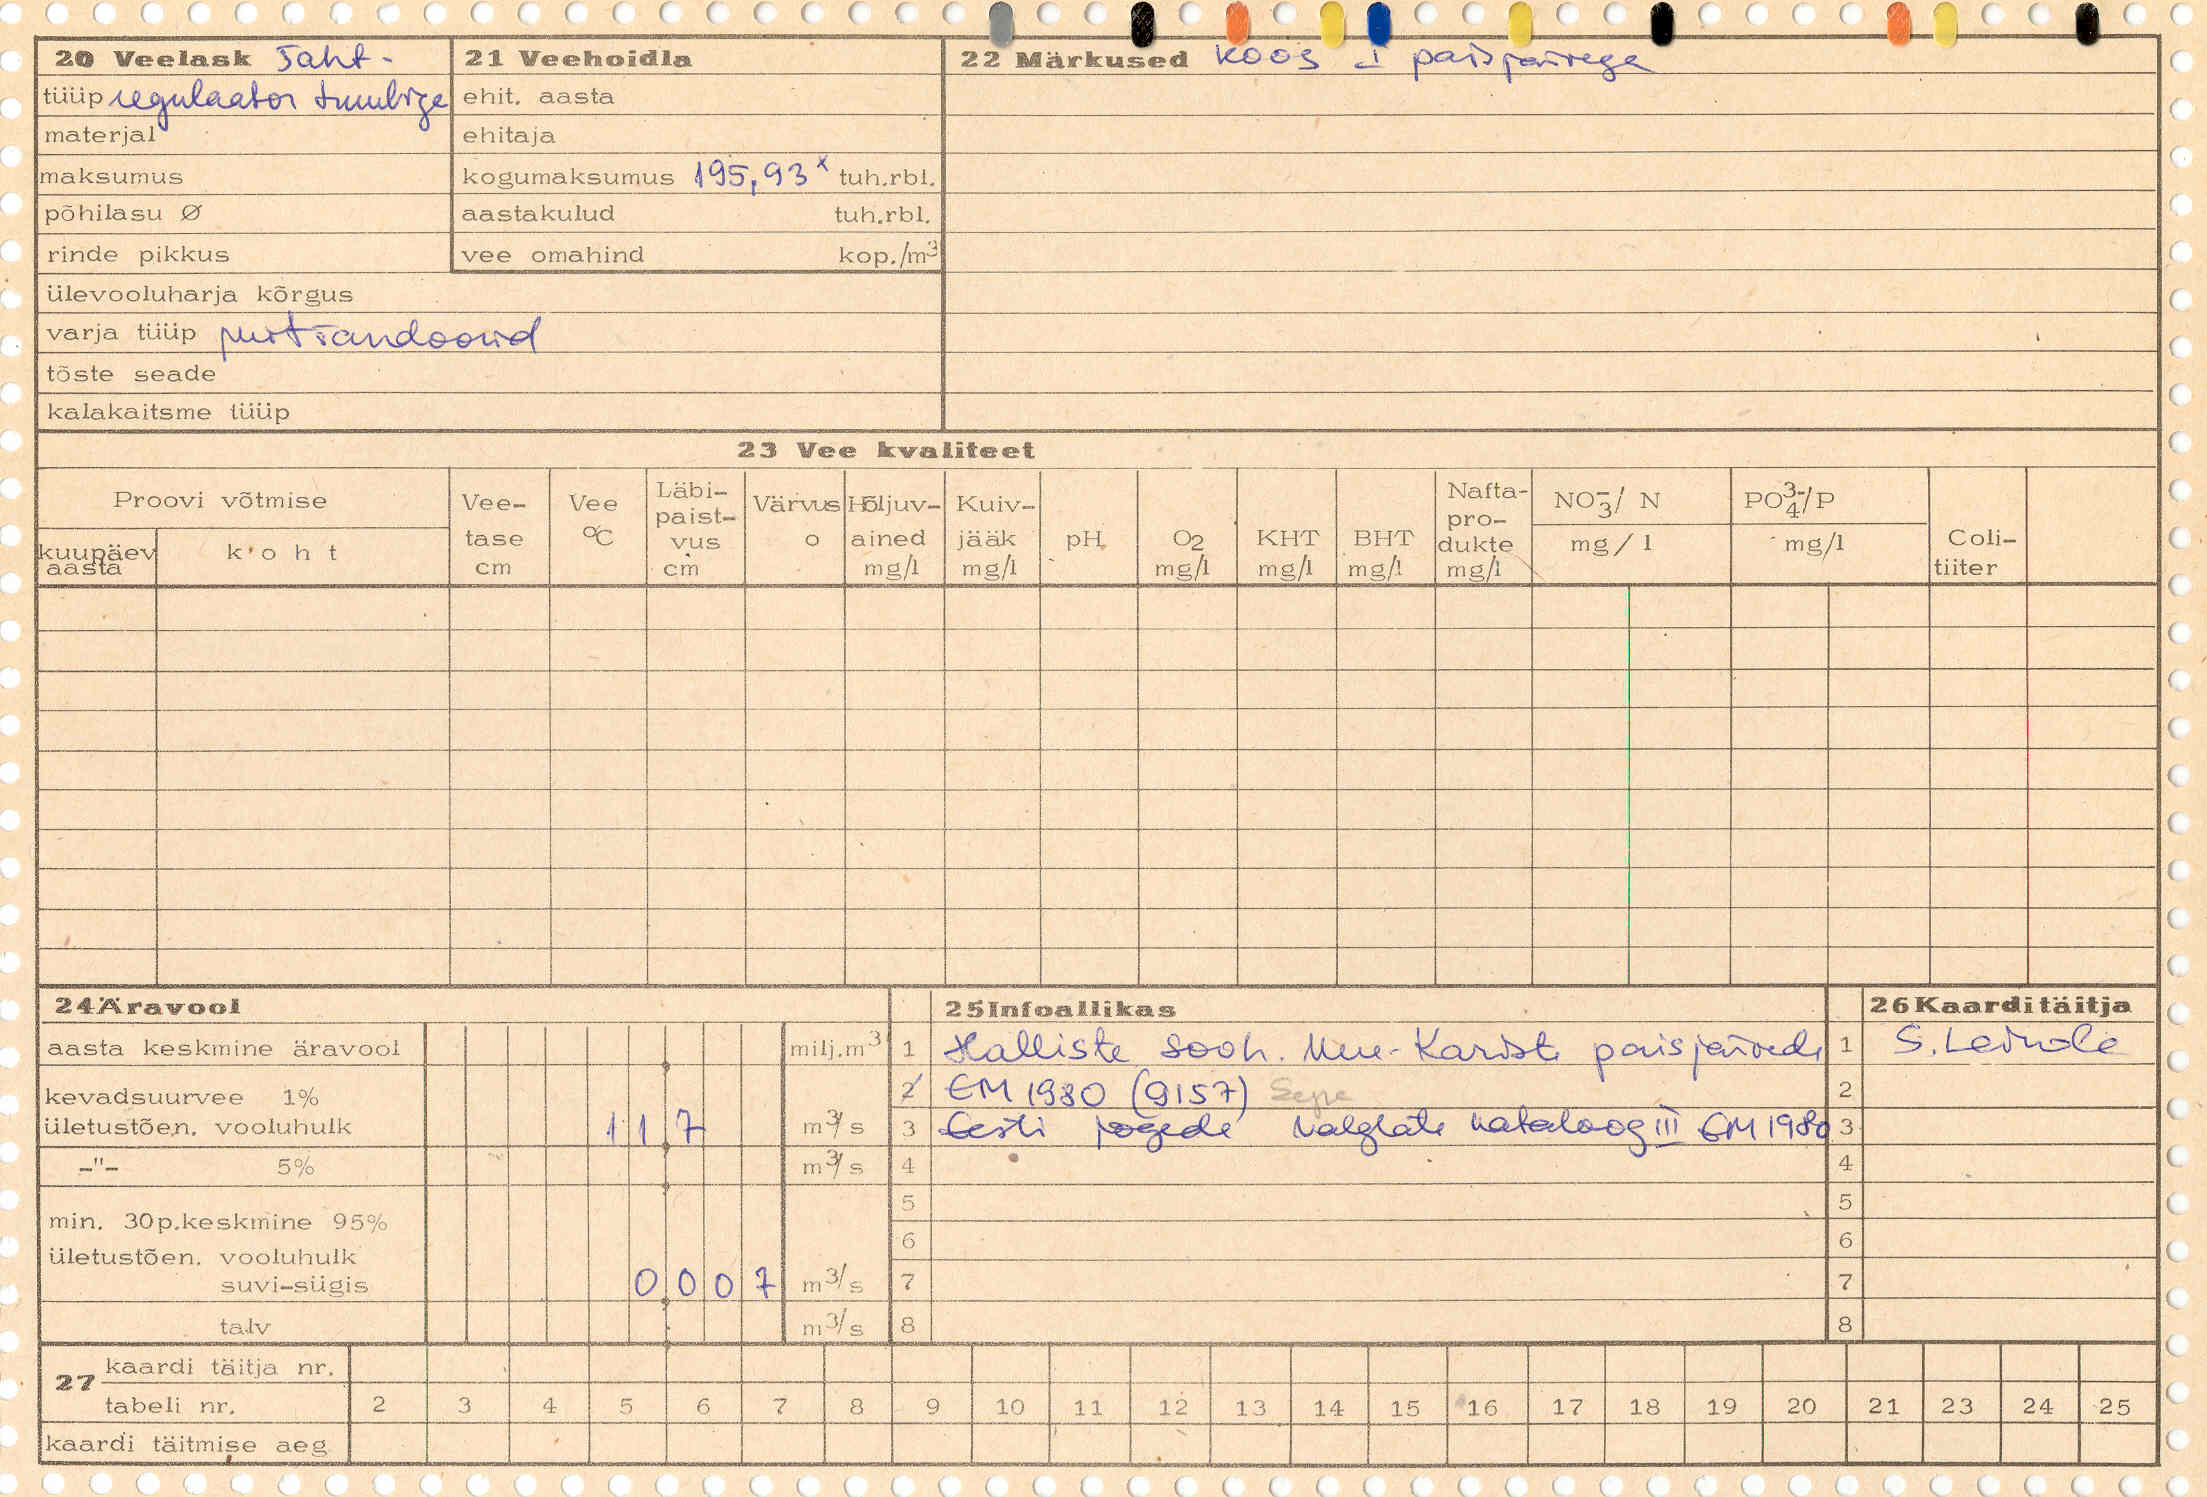 20 Veelask Šaht-
tüüp regulaator truubiga
materjal
maksumus
põhilasu Ø
rinde pikkus
ülevooluharja kõrgus
varja tüüp puitšandoorid
tõste seade
kalakaitsme tüüp
21 Veehoidla
ehit. aasta
ehitaja
kogumaksumus 195,93ˣ tuh.rbl.
aastakulud tuh.rbl.
vee omahind kop./m³
22 Märkused koos I paisjärvega
23 Vee kvaliteet
Proovi võtmise
kuupäev aasta
koht
Vee-tase cm
Vee °C
Läbi-paist-vus cm
Värvus o
Hõljuv-ained mg/l
Kuiv-jääk mg/l
pH
O2 mg/l
KHT mg/l
BHT mg/l
Nafta-pro-dukte mg/l
NO3-/ N mg/l
PO4 3-/P mg/l
Coli-tiiter
24 Äravool
aasta keskmine äravool milj.m³
kevadsuurvee 1%
ületustõen. vooluhulk 11 7 m³/s
-"- 5% m³/s
min. 30p.keskmine 95%
ületustõen. vooluhulk
suvi-sügis 0 0 0 7 m³/s
talv m³/s
25 Infoallikas
1 Halliste sooh. Uue-Kariste paisjärved
2 EM 1980 (9157) Sepe
3 Eesti jõgede valglate kataloog III EM 1980
4
5
6
7
8
26 Kaarditäitja
1 S. Leinola
2
3
4
5
6
7
8
27 kaardi täitja nr.
tabeli nr. 2 3 4 5 6 7 8 9 10 11 12 13 14 15 16 17 18 19 20 21 23 24 25
kaardi täitmise aeg